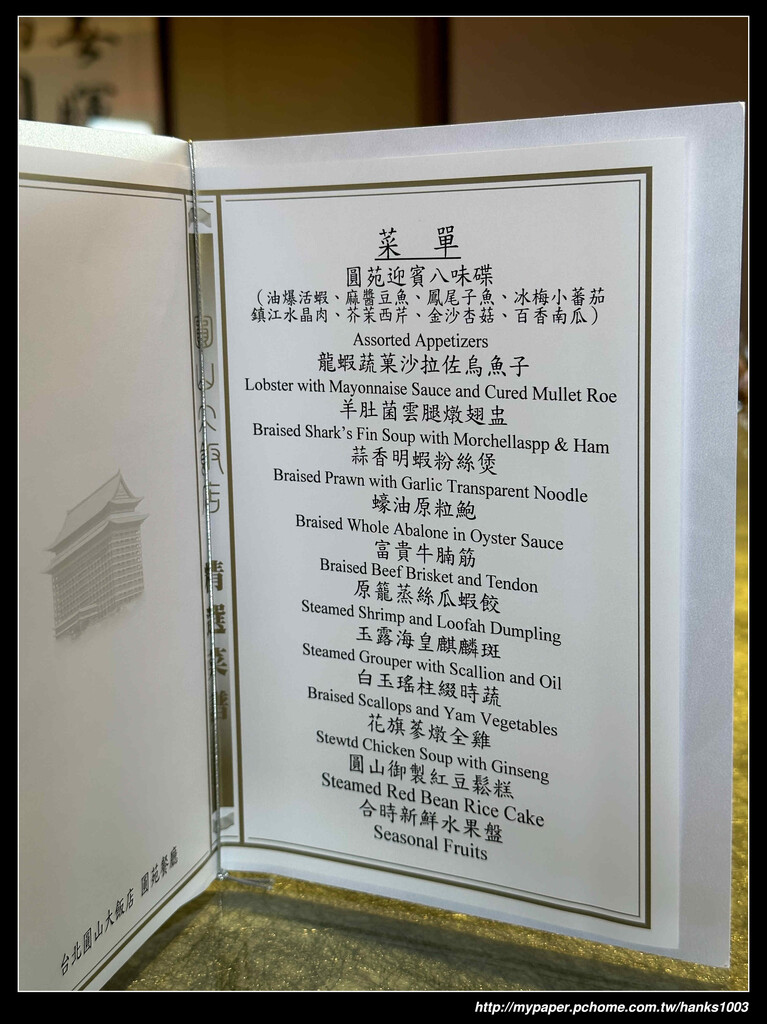 菜 單
圓苑迎賓八味碟
（油爆活蝦、麻醬豆魚、鳳尾子魚、冰梅小蕃茄
鎮江水晶肉、芥茉西芹、金沙杏菇、百香南瓜）
Assorted Appetizers
龍蝦蔬菓沙拉佐烏魚子
Lobster with Mayonnaise Sauce and Cured Mullet Roe
羊肚菌雲腿燉翅盅
Braised Shark's Fin Soup with Morchellaspp & Ham
蒜香明蝦粉絲煲
Braised Prawn with Garlic Transparent Noodle
蠔油原粒鮑
Braised Whole Abalone in Oyster Sauce
富貴牛腩筋
Braised Beef Brisket and Tendon
原籠蒸絲瓜蝦餃
Steamed Shrimp and Loofah Dumpling
玉露海皇麒麟斑
Steamed Grouper with Scallion and Oil
白玉瑤柱綴時蔬
Braised Scallops and Yam Vegetables
花旗蔘燉全雞
Stewtd Chicken Soup with Ginseng
圓山御製紅豆鬆糕
Steamed Red Bean Rice Cake
合時新鮮水果盤
Seasonal Fruits
圓山大飯店
精選菜譜
台北圓山大飯店 圓苑餐廳
http://mypaper.pchome.com.tw/hanks1003